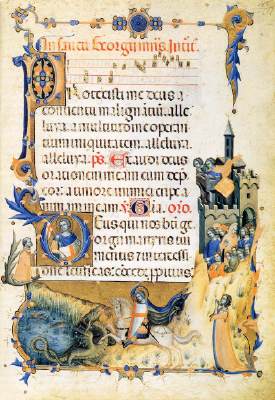 In sancti Georgii mris Introit.
Protexisti me deus a
conuentu malignātiū. alle
luya. a multitudine operan
tium iniquitatem alleluya
alleluya. ps. Exaudi deus
orationem meam cum dep
cor. a timore inimici eripe
animam meam. Gloria. oro.
Deus qui nos bti ge
orgii martiris tui
meritis et intercessi
one letificas: concede ppitius